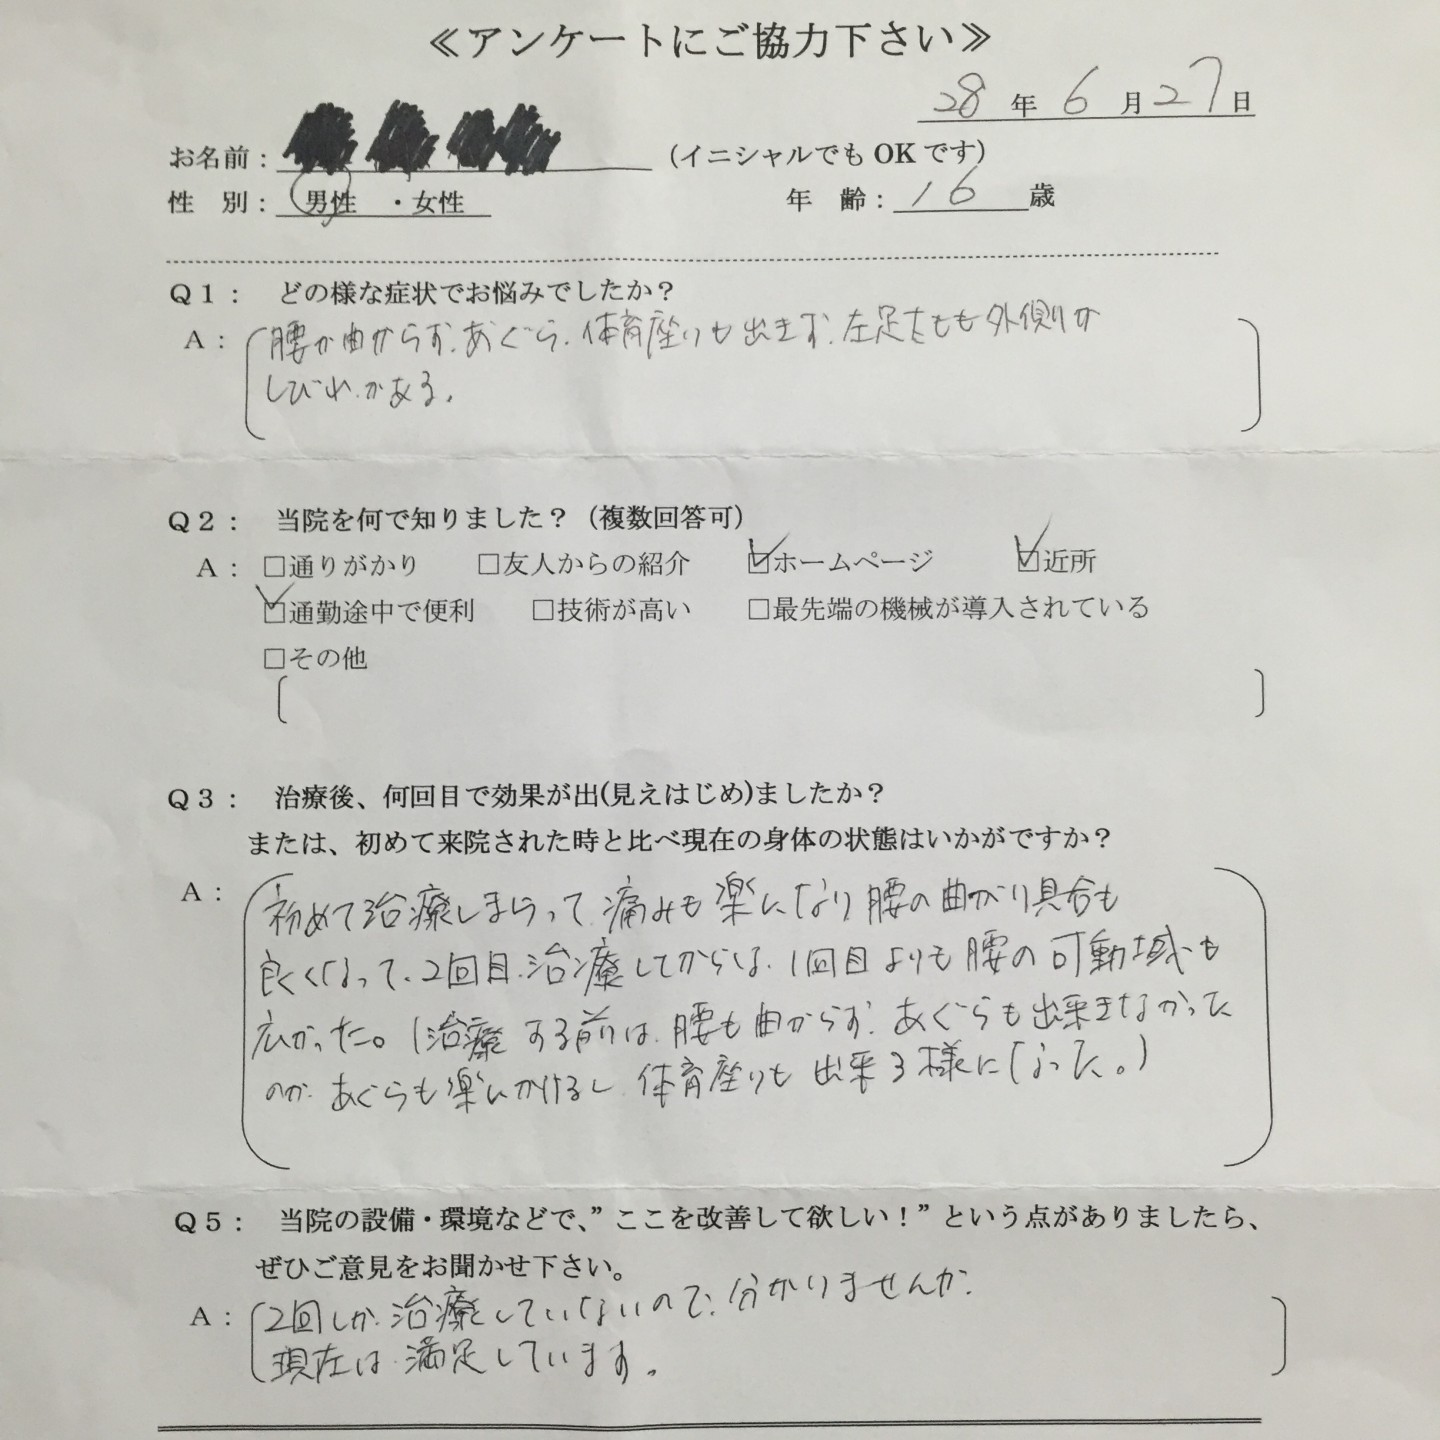 ≪アンケートにご協力下さい≫
28年6月27日
お名前：（イニシャルでもOKです）
性 別： 男性 ・女性 年 齢： 16 歳
Q1： どの様な症状でお悩みでしたか？
A： 腰が曲がらず、あぐら、体育座りも出きず、左足をもも外側が
しびれがある。
Q2： 当院を何で知りました？（複数回答可）
A： □通りがかり □友人からの紹介 ☑ホームページ ☑近所
☑通勤途中で便利 □技術が高い □最先端の機械が導入されている
□その他
Q3： 治療後、何回目で効果が出(見えはじめ)ましたか？
または、初めて来院された時と比べ現在の身体の状態はいかがですか？
A： 初めて治療しまらって、痛みも楽になり腰の曲がり具合も
良くなって、2回目、治療してからは、1回目よりも腰の可動域も
広がった。(治療する前は、腰も曲がらず、あぐらも出来きなかった
のが、あぐらも楽にかけるし、体育座りも出来る様になった。)
Q5： 当院の設備・環境などで、”ここを改善して欲しい！”という点がありましたら、
ぜひご意見をお聞かせ下さい。
A： 2回しか治療していないので、分かりませんが、
現在は満足しています。